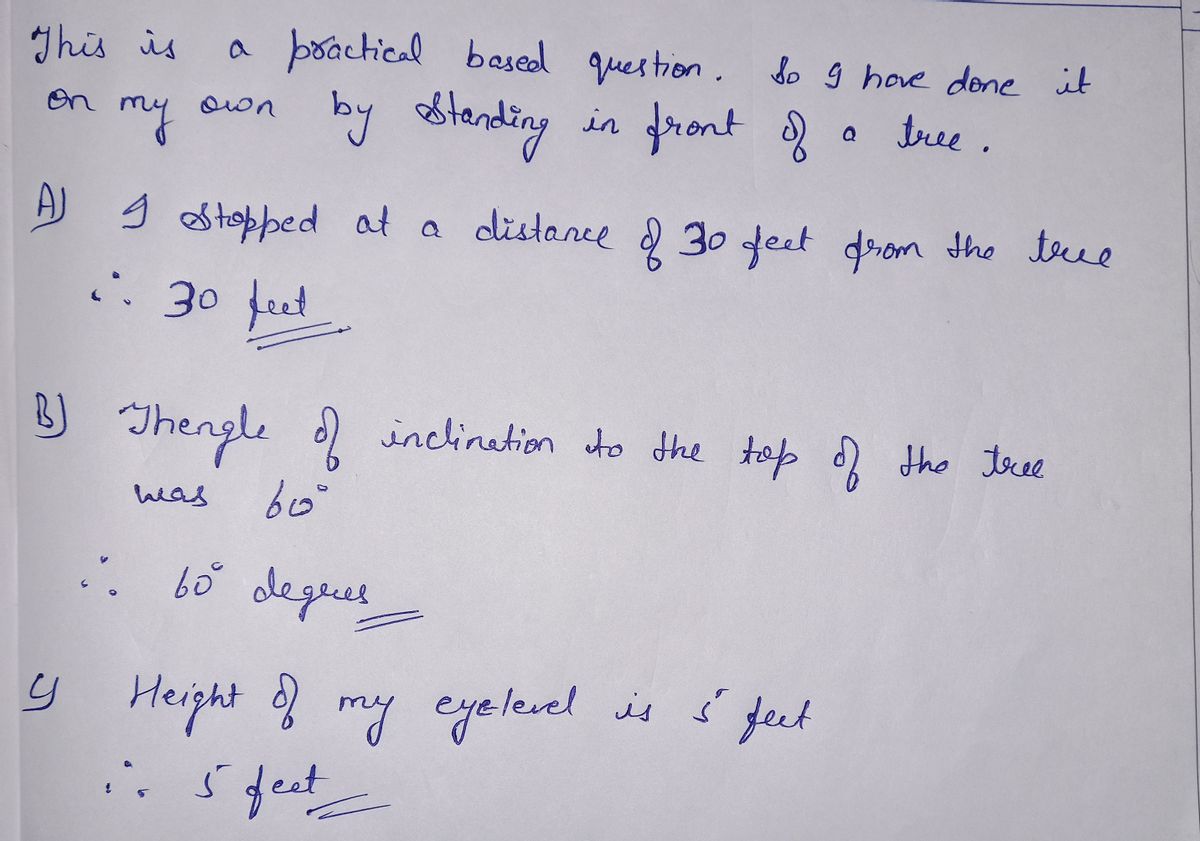 This is a practical based question. So I have done it
on my own by standing in front of a tree.
A) I stopped at a distance of 30 feet from the tree
∴ 30 feet
B) Thengle of inclination to the top of the tree
was 60°
∴ 60° degrees
C) Height of my eyelevel is 5 feet
∴ 5 feet